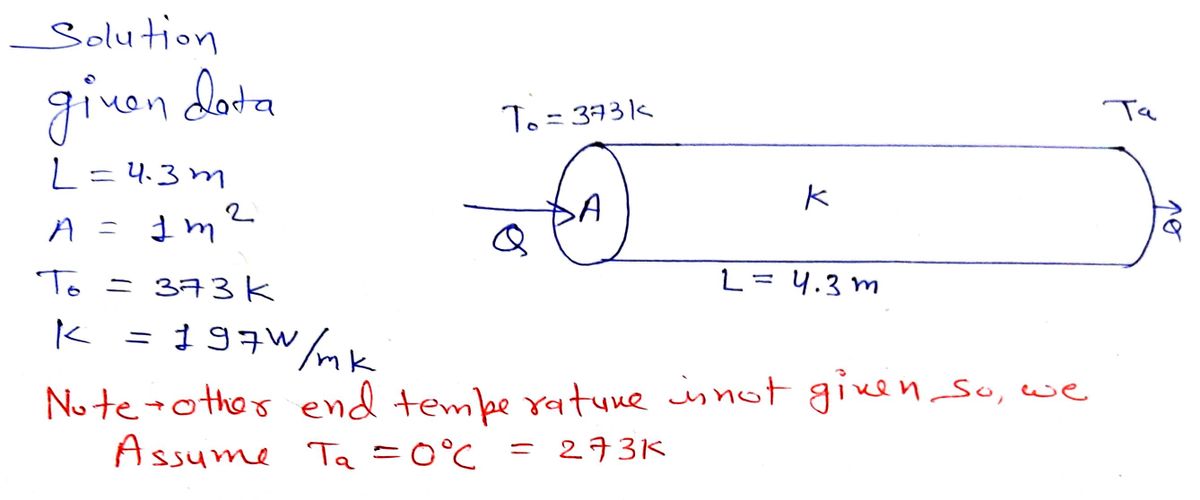 Solution
given data
L = 4.3 m
A = 1 m²
T₀ = 373 K
K = 197 W/mK
T₀ = 373 K
Ta
A
K
Q
Q
L = 4.3 m
Note → other end temperature is not given so, we
Assume Ta = 0°C = 273K